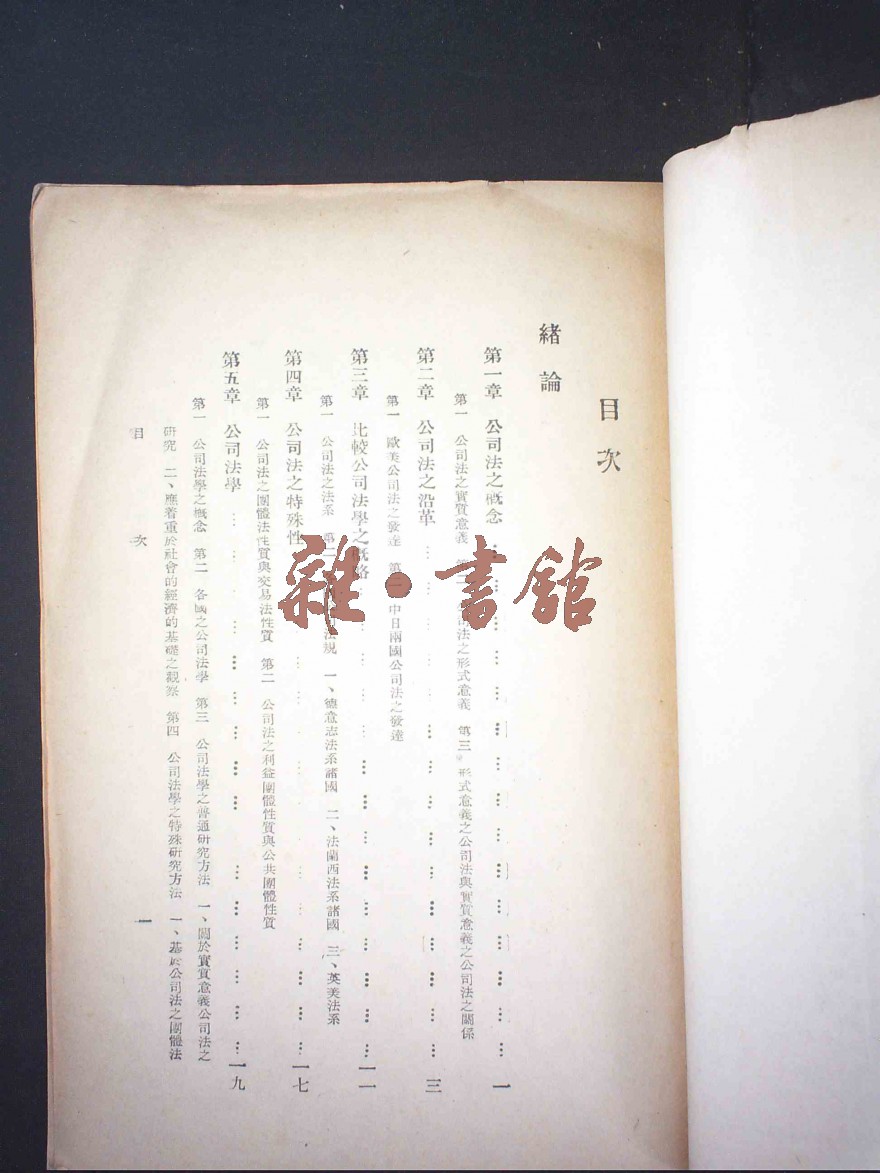 目次
緒論
第一章 公司法之概念 一
第一 公司法之實質意義 第二 公司法之形式意義 第三 形式意義之公司法與實質意義之公司法之關係
第二章 公司法之沿革 三
第一 歐美公司法之發達 第二 中日兩國公司法之發達
第三章 比較公司法學之概略 一一
第一 公司法之法系 第二 法規 一、德意志法系諸國 二、法蘭西法系諸國 三、英美法系
第四章 公司法之特殊性 一七
第一 公司法之團體法性質與交易法性質 第二 公司法之利益團體性質與公共團體性質
第五章 公司法學 一九
第一 公司法學之概念 第二 各國之公司法學 第三 公司法學之普通研究方法 一、關於實質意義公司法之
研究 二、應着重於社會的經濟的基礎之觀察 第四 公司法學之特殊研究方法 一、基於公司法之團體法
目次 一
雜·書館